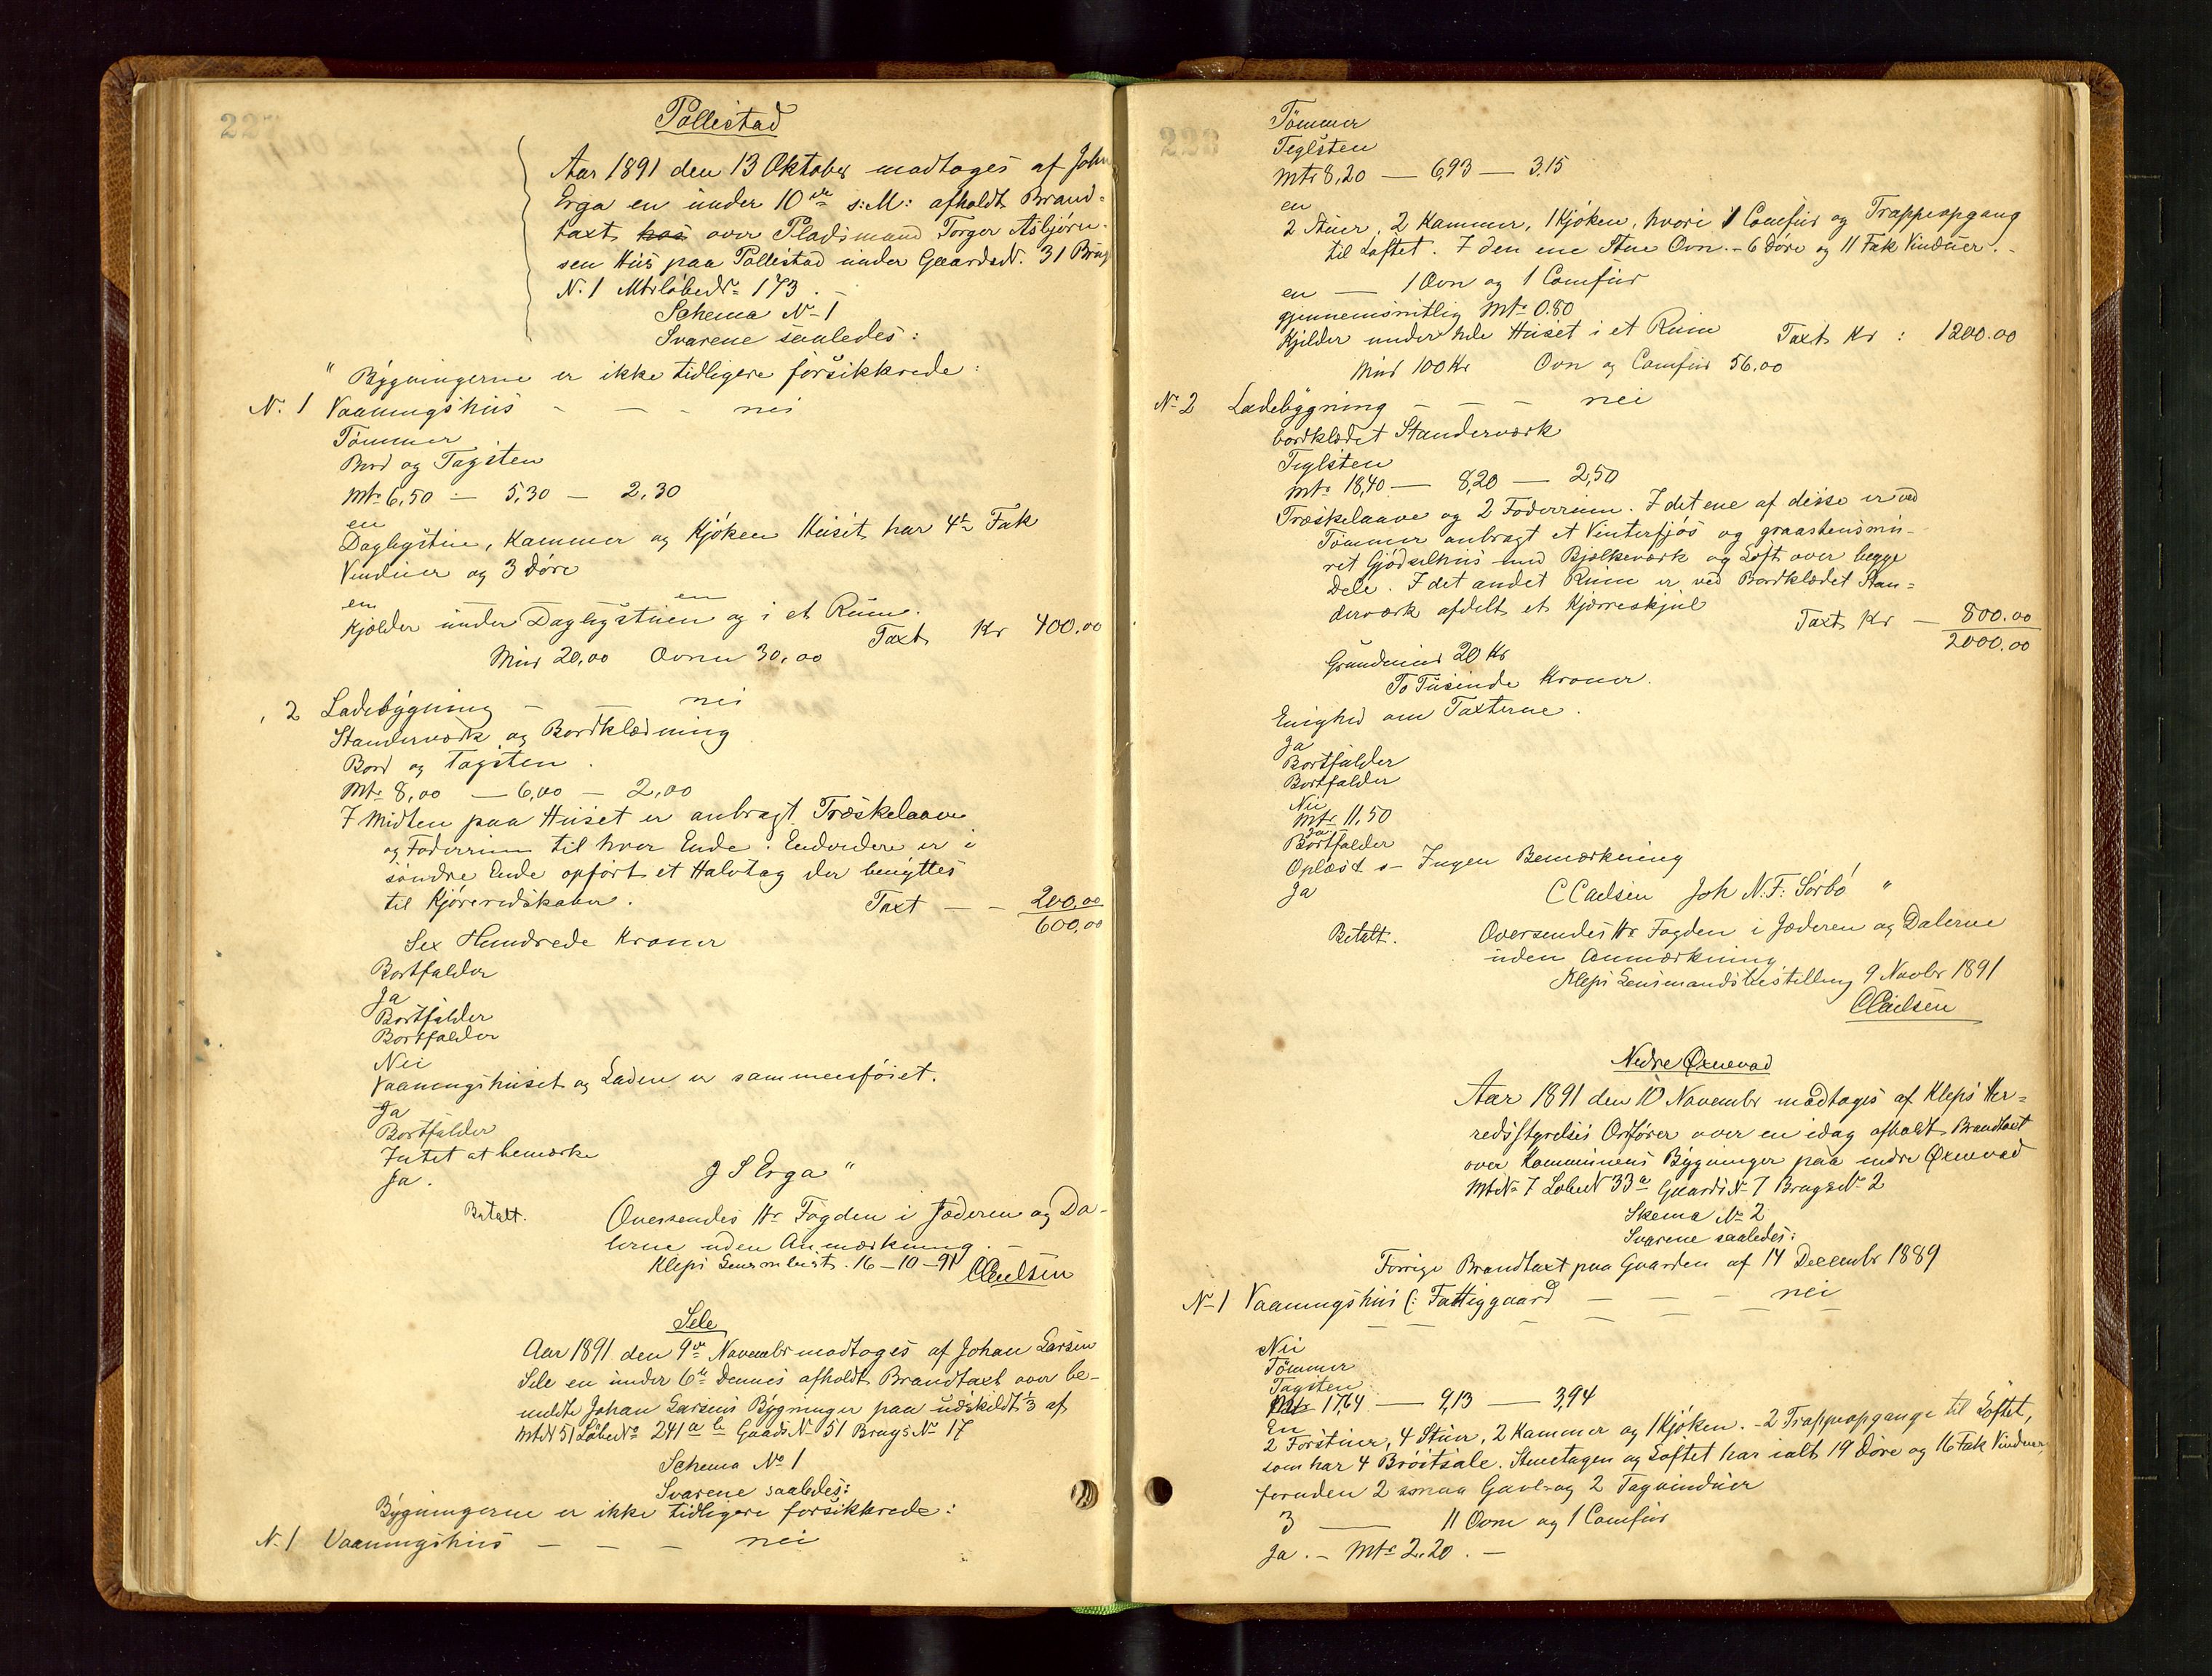 227
Pollestad
Aar 1891 den 13 Oktober modtoges af John
Erga en under 10de s:M: afholdt Brand-
taxt hos over Pladsmand Torger Asbjørn-
sen Hus paa Pollestad under GaardsN. 31 Brugs
N. 1 MtrløbeNr 173. -
Schema No 1
Svarene saaledes:
" Bygningerne er ikke tidligere forsikkrede:
N. 1 Vaaningshus - - - nei
Tømmer
Bord og Tagsten
Mtr 6,50 - 5,30 - 2,30
en
Dagligstue, Kammer og Kjøken Huset har 4re Fak
Vinduer og 3 Døre
en — — en
Kjelder under Dagligstuen og i et Rum.
Taxt Kr 400.00
Mur 20,00 Ovnen 30,00
, 2 Ladebygning - - nei
Standerværk og Bordklædning
Bord og Tagsten.
Mtr 8,00 — 6,00 — 2,00
I Midten paa Huset er anbragt Træskelaave
og Foderrum til hver Ende. Endvidere er i
søndre Ende opført et Halvtag der benyttes
til Kjøreredskaber.
Taxt — - 200,00
600,00
Sex Hundrede Kroner
Bortfalder
Ja
Bortfalder
Bortfalder
Nei
Vaaningshuset og Laden er sammenføiet.
Ja
Bortfalder
Intet at bemærke
Ja.
J S Erga "
Betalt.
Oversendes Hr Fogden i Jæderen og Da-
lerne uden Anmærkning. -
Kleps Lensmbest. 16-10-91
CCarlsen
Sele
Aar 1891 den 9de Novembr modtoges af Johan Larsen
Sele en under 6te Dennes afholdt Brandtaxt over be-
meldte Johan Larsens Bygninger paa udskildt 1/3 af
MtrN 51 LøbeNo 241 a b GaardsN 51 BrugsNo 17
Schema No 1
Svarene saaledes:
Bygningerne er ikke tidligere forsikkrede:
N. 1 Vaaningshus - - - nei
228
Tømmer
Teglsten
Mtr 8,20 — 6,93 — 3,15
en
2 Stuer, 2 Kammer, 1 Kjøken, hvori 1 Comfur og Trappeopgang
til Loftet. I den ene Stue Ovn. - 6 Døre og 11 Fak Vinduer. -
en — 1 Ovn og 1 Comfur
gjennemsnitlig Mtr 0.80
Kjelder under hele Huset i et Rum
Taxt Kr : 1200.00
Mur 100 Kr Ovn og Comfur 56,00
No 2 Ladebygning - - - nei
bordklædt Standerværk
Teglsten
Mtr 18,40 — 8,20 — 2,50
Træskelaave og 2 Foderrum. I det ene af disse er ved
Tømmer anbragt et Vinterfjøs og graastensmu-
ret Gjødselhus med Bjelkeværk og Loft over begge
Dele. I det andet Rum er ved Bordklædt Stan-
derværk afdelt et Kjærreskjul
Taxt Kr — 800.00
2000.00
Grundmur 20 Kr
To Tusinde Kroner.
Enighed om Taxterne.
Ja
Bortfalder
Bortfalder
Nei
Mtr 11,50
Ja
Bortfalder
Oplæst - Ingen Bemærkning
Ja
CCarlsen Joh N. F. Sørbø "
Betalt.
Oversendes Hr Fogden i Jæderen og Dalerne
uden Anmærkning
Kleps Lensmandsbestilling 9 Novbr 1891
CCarlsen
Nedre Øxnevad
Aar 1891 den 10 Novembr modtoges af Kleps Her-
redsstyrelses Ordfører over en idag afholdt Brandtaxt
over Kommunens Bygninger paa nedre Øxnevad
MtNo 7 LøbeN 33a GaardsN 7 BrugsNo 2
Skema No 2
Svarene saaledes:
Forrige Brandtaxt paa Gaarden af 14 Decembr 1889
No 1 Vaaningshus (: Fattiggaard - - - nei
— — — — —
Nei
Tømmer
Tagsten
Mtr 17,64 — 9,13 — 3,94
En
2 Forstuer, 4 Stuer, 2 Kammer og 1 Kjøken. - 2 Trappeopgange til Loftet,
som har 4 Brøstsale. Stuetagen og Loftet har ialt 19 Døre og 16 Fak Vinduer,
foruden 2 smaa Gavl- og 2 Tagvinduer
3 — 11 Ovne og 1 Comfur
Ja. - Mtr 2.20. -